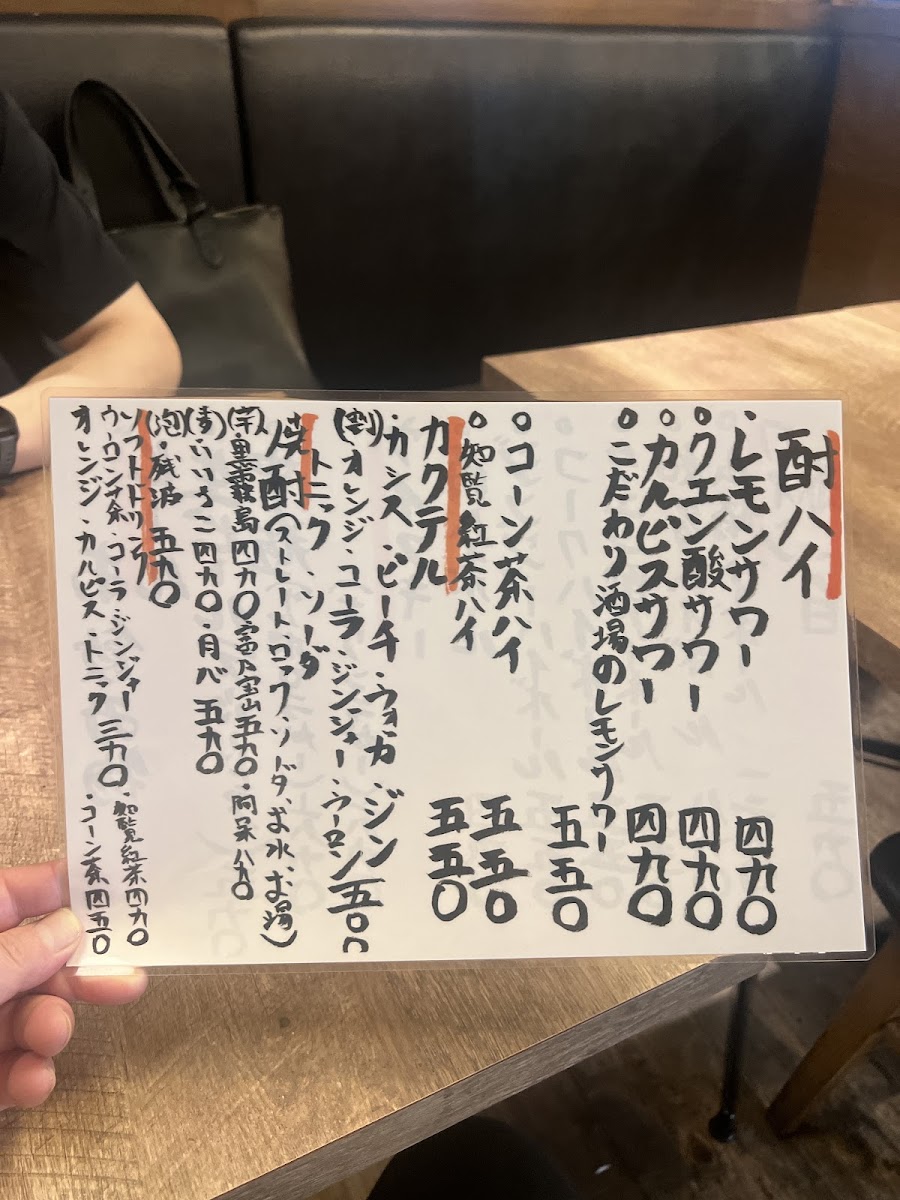 酎ハイ
・レモンサワー 四九〇
○クエン酸サワー 四九〇
○カルピスサワー 四九〇
○こだわり酒場のレモンサワー 五五〇
○コーン茶ハイ 五五〇
○知覧紅茶ハイ 五五〇
カクテル
・カシス・ピーチ・ウォカ・ジン
(割)オレンジ・コーラ・ジンジャー・ウーロン 五〇〇
トニック・ソーダ
焼酎(ストレート、ロック、ソーダ、お水、お湯)
(芋)・黒霧島 四九〇・富乃宝山 五九〇・阿呆 八九〇
(麦)・いいちこ 四九〇・月心 五九〇
(泡)・残波 五九〇
ソフトドリンク
ウーロン茶・コーラ・ジンジャー 三九〇・知覧紅茶 四九〇
オレンジ・カルピス・トニック・コーン茶 四五〇